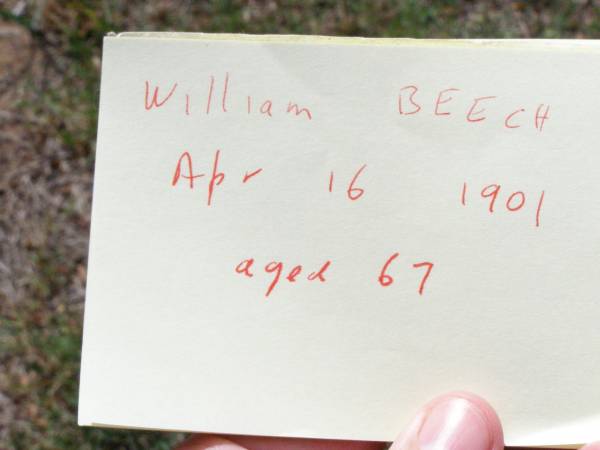 William BEECH
Apr 16 1901
aged 67